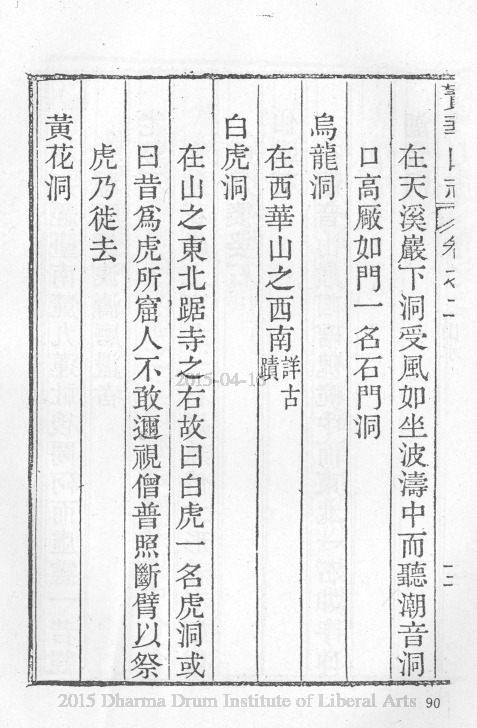 寶華山志 卷之二 十二
在天溪巖下洞受風如坐波濤中而聽潮音洞
口高厰如門一名石門洞
烏龍洞
在西華山之西南詳古蹟
白虎洞
在山之東北踞寺之右故曰白虎一名虎洞或
曰昔爲虎所窟人不敢邇視僧普照斷臂以祭
虎乃徙去
黃花洞
2015-04-16
2015 Dharma Drum Institute of Liberal Arts
90